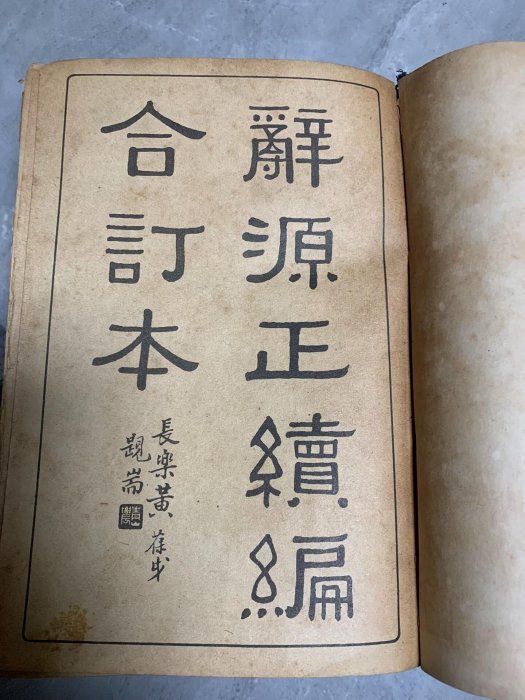 辭源正續編
合訂本
長樂黃葆戉
題耑